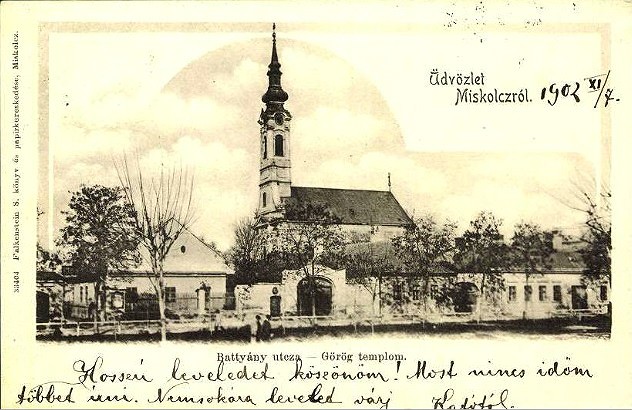 Üdvözlet
Miskolczról.
1902 XI/7.
33404 Falkenstein S. könyv és papirkereskedése, Miskolcz.
Battyány utcza – Görög templom.
Hosszú leveledet köszönöm! Most nincs időm
többet irni. Nemsokára levelet várj
Katótól.